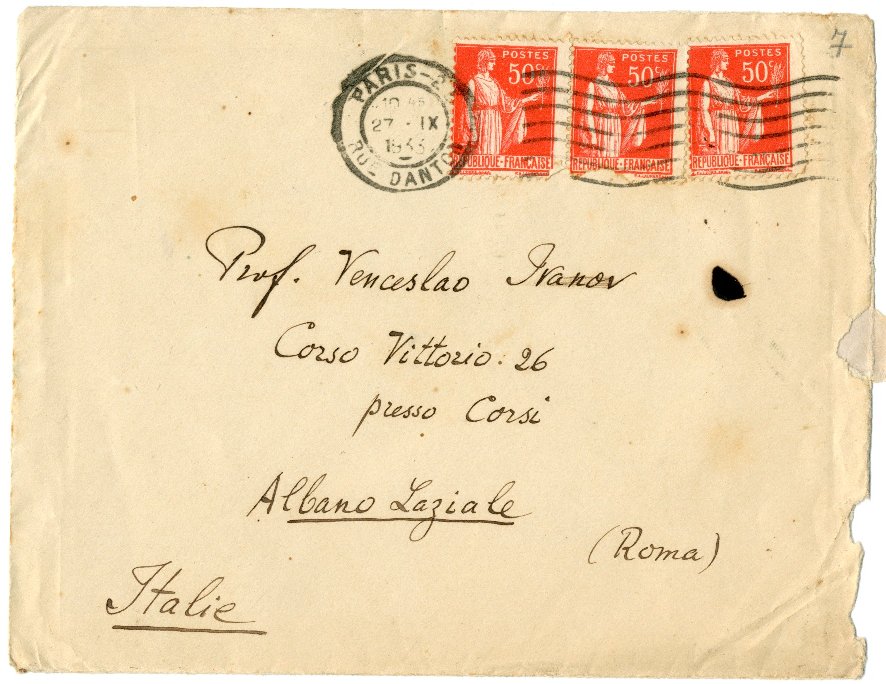 7
POSTES POSTES POSTES
50c 50c 50c
REPUBLIQUE-FRANÇAISE REPUBLIQUE-FRANÇAISE REPUBLIQUE-FRANÇAISE
PARIS-
27 - IX
1933
RUE DANTON
Prof. Venceslao Ivanov
Corso Vittorio. 26
presso Corsi
Albano Laziale
(Roma)
Italie